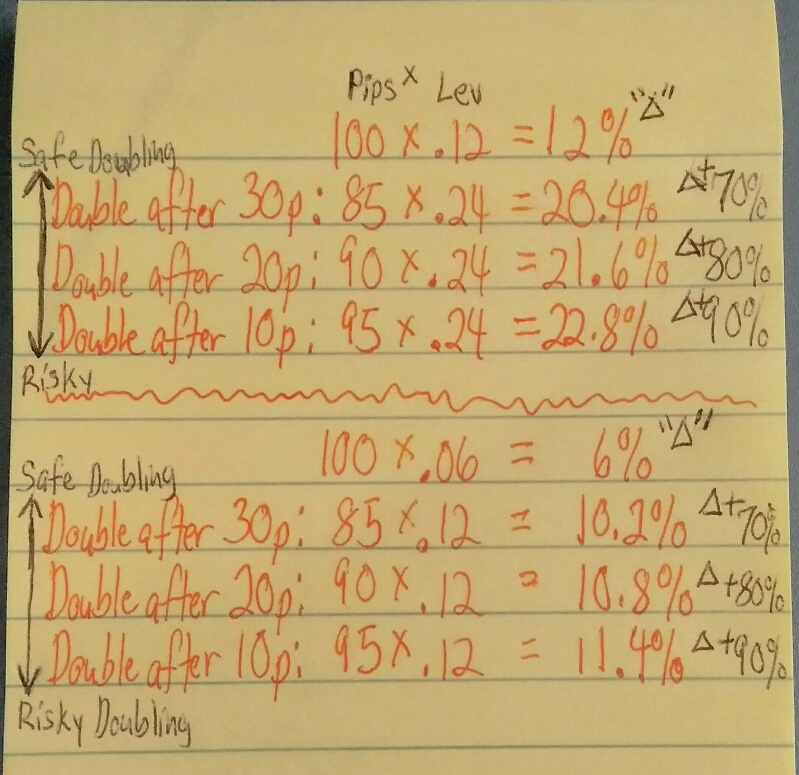 Pips x Lev
100 x .12 = 12% "Δ"
Safe Doubling
Double after 30p: 85 x .24 = 20.4% Δ+70%
Double after 20p: 90 x .24 = 21.6% Δ+80%
Double after 10p: 95 x .24 = 22.8% Δ+90%
Risky
100 x .06 = 6% "Δ"
Safe Doubling
Double after 30p: 85 x .12 = 10.2% Δ+70%
Double after 20p: 90 x .12 = 10.8% Δ+80%
Double after 10p: 95 x .12 = 11.4% Δ+90%
Risky Doubling